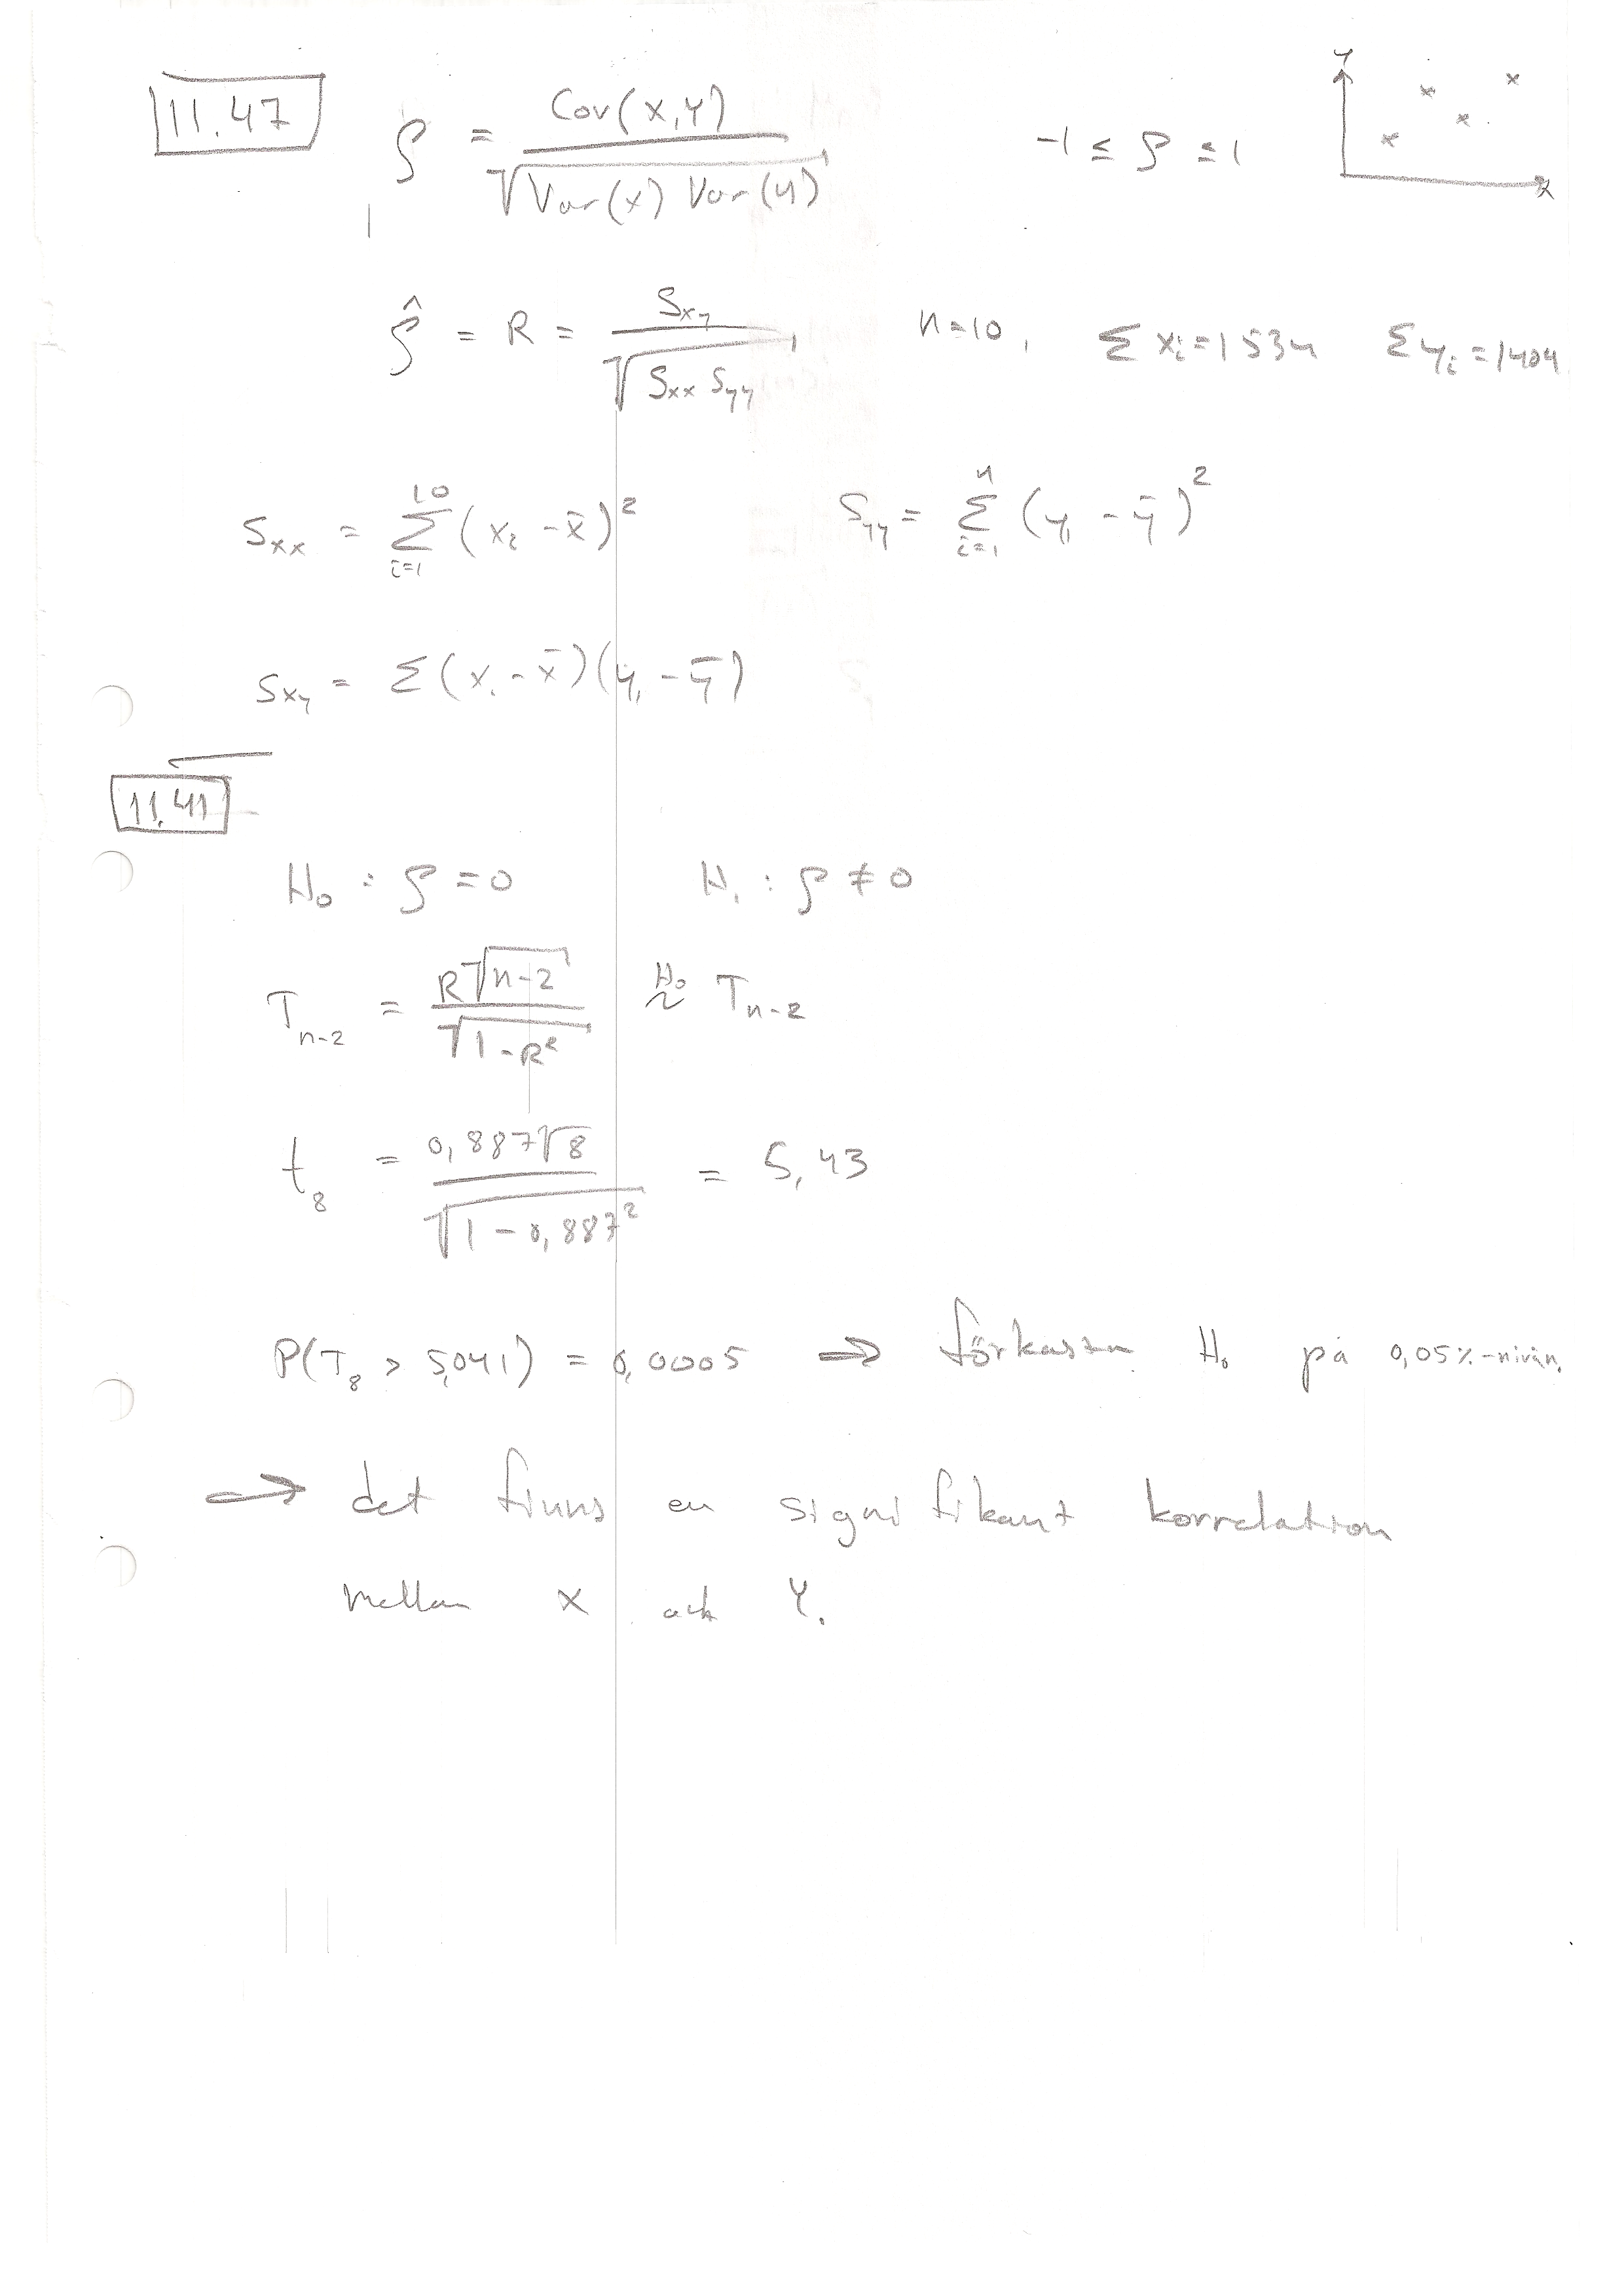 11.47
ρ = Cov(X,Y) / √(Var(X) Var(Y))    -1 ≤ ρ ≤ 1    Y X
ρ̂ = R = Sxy / √(Sxx Syy)    n=10, Σxi=1534 Σyi=1404
Sxx = Σ_{i=1}^{10} (xi - x̄)²    Syy = Σ_{i=1}^{n} (yi - ȳ)²
Sxy = Σ(xi - x̄)(yi - ȳ)
11.41
H₀ : ρ = 0    H₁ : ρ ≠ 0
T_{n-2} = R√(n-2) / √(1-R²) ~^{H₀} T_{n-2}
t₈ = 0,887√8 / √(1-0,887²) = 5,43
P(T₈ > 5,041) = 0,0005 ⇒ förkasta H₀ på 0,05%-nivån.
⇒ det finns en signifikant korrelation
mellan X och Y.